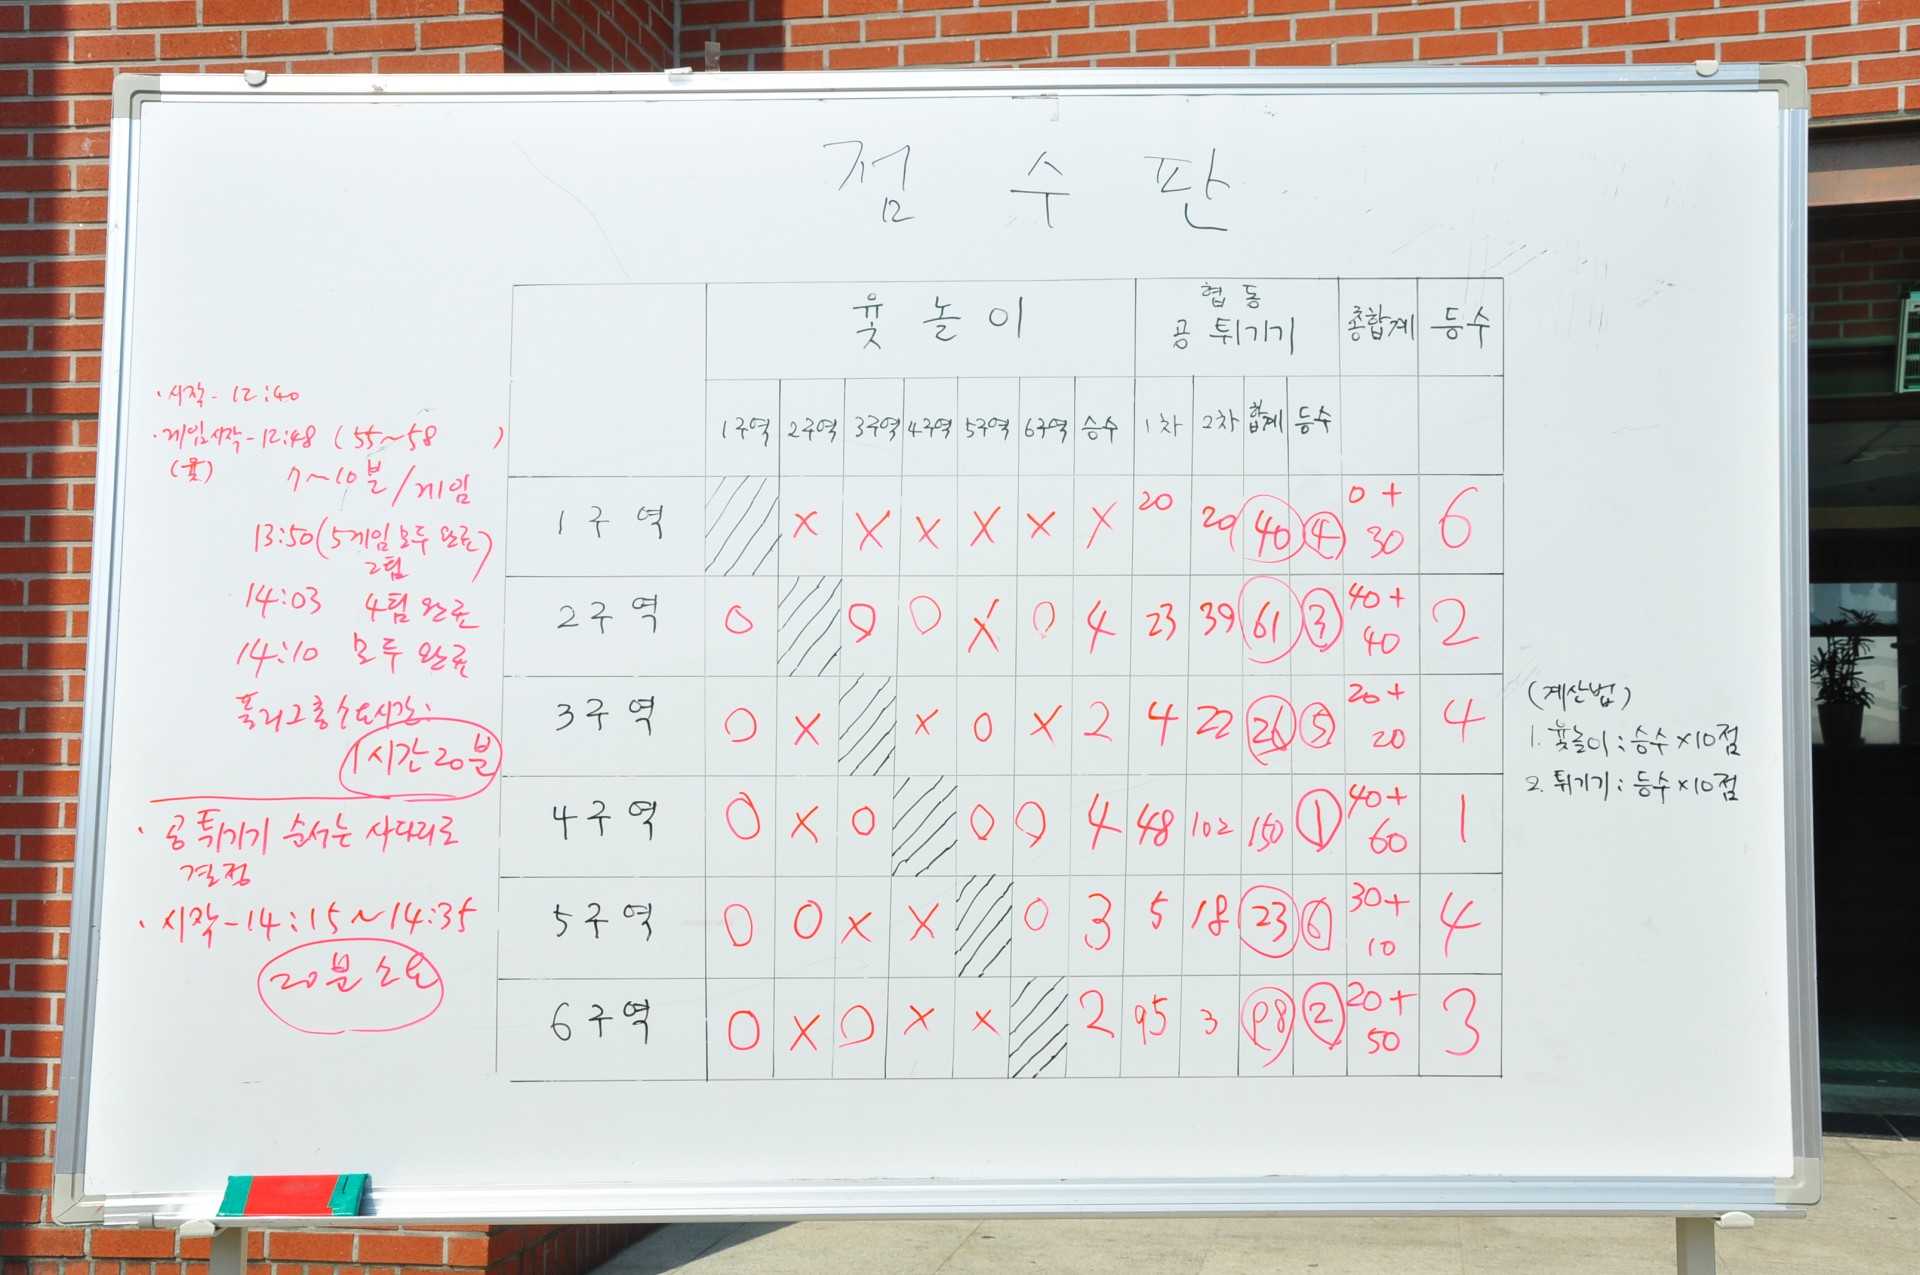 점 수 판
윷 놀 이 협 동 공 튀기기 총합계 등수
1구역 2구역 3구역 4구역 5구역 6구역 승수 1차 2차 합계 등수
1 구 역 X X X X X X 20 20 40 4 0 + 30 6
2 구 역 O O O X O 4 23 39 61 3 40 + 40 2
3 구 역 O X X O X 2 4 22 26 5 20 + 20 4
4 구 역 O X O O O 4 48 102 150 1 40 + 60 1
5 구 역 O O X X O 3 5 18 23 6 30 + 10 4
6 구 역 O X O X X 2 95 3 98 2 20 + 50 3
· 시작 - 12:40
· 게임시작 - 12:48 (55~58 )
(윷) 7~10분/게임
13:50(5게임 모두 완료)
2팀
14:03 4팀 완료
14:10 모두 완료
풀리그 총 소요시간:
1시간 20분
· 공 튀기기 순서는 사다리로
결정
· 시작 - 14:15~14:35
20분 소요
(계산법)
1. 윷놀이 : 승수 ×10점
2. 튀기기 : 등수 ×10점